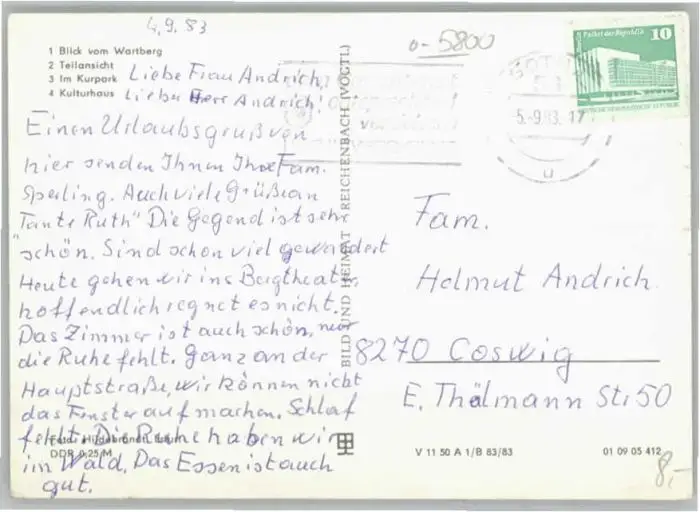 4.9.83
o- 5800
1 Blick vom Wartberg
2 Teilansicht
3 Im Kurpark
4 Kulturhaus
Liebe Frau Andrich,
Lieber Herr Andrich!
Einen Urlaubsgruß von
hier senden Ihnen Ihre Fam.
Sperling. Auch viele Grüße an
"Tante Ruth" Die Gegend ist sehr
schön. Sind schon viel gewandert
Heute gehen wir ins Bergtheater,
hoffendlich regnet es nicht.
Das Zimmer ist auch schön, nur
die Ruhe fehlt. Ganz an der
Hauptstraße, wir können nicht
das Fenster aufmachen. Schlaf
fehlt. Die Ruhe haben wir
im Wald. Das Essen ist auch
gut.
Foto: Hildebrandt,
DDR 0,25 M
BILD UND HEIMAT REICHENBACH (VOGTL)
Palast der Republik
10
DEUTSCHE DEMOKRATISCHE REPUBLIK
5.-9.83.-17
u
Fam.
Helmut Andrich
8270 Coswig
E. Thälmann Str. 50
V 11 50 A 1/B 83/83
01 09 05 412
8,-